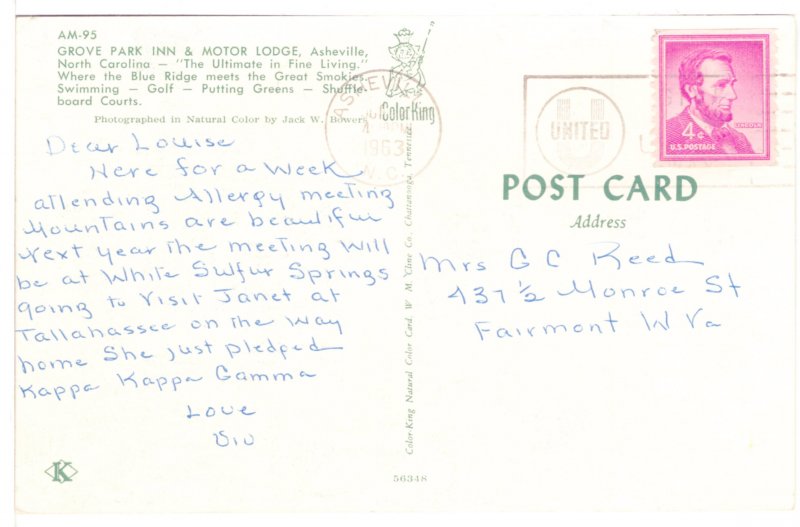 AM-95
GROVE PARK INN & MOTOR LODGE, Asheville,
North Carolina — "The Ultimate in Fine Living."
Where the Blue Ridge meets the Great Smokies.
Swimming — Golf — Putting Greens — Shuffle-
board Courts.
Photographed in Natural Color by Jack W. Bowers
Color King
ASHEVILLE
1963
N.C.
Dear Louise
Here for a Week
attending Allergy meeting
Mountains are beautiful
Next year the meeting will
be at White Sulfur Springs
going to Visit Janet at
Tallahassee on the way
home She just pledged
Kappa Kappa Gamma
Love
Viv
K
Color-King Natural Color Card, W. M. Cline Co., Chattanooga, Tennessee
56348
UNITED
4¢
LINCOLN
U.S. POSTAGE
POST CARD
Address
Mrs G C Reed
437 1/2 Monroe St
Fairmont W Va